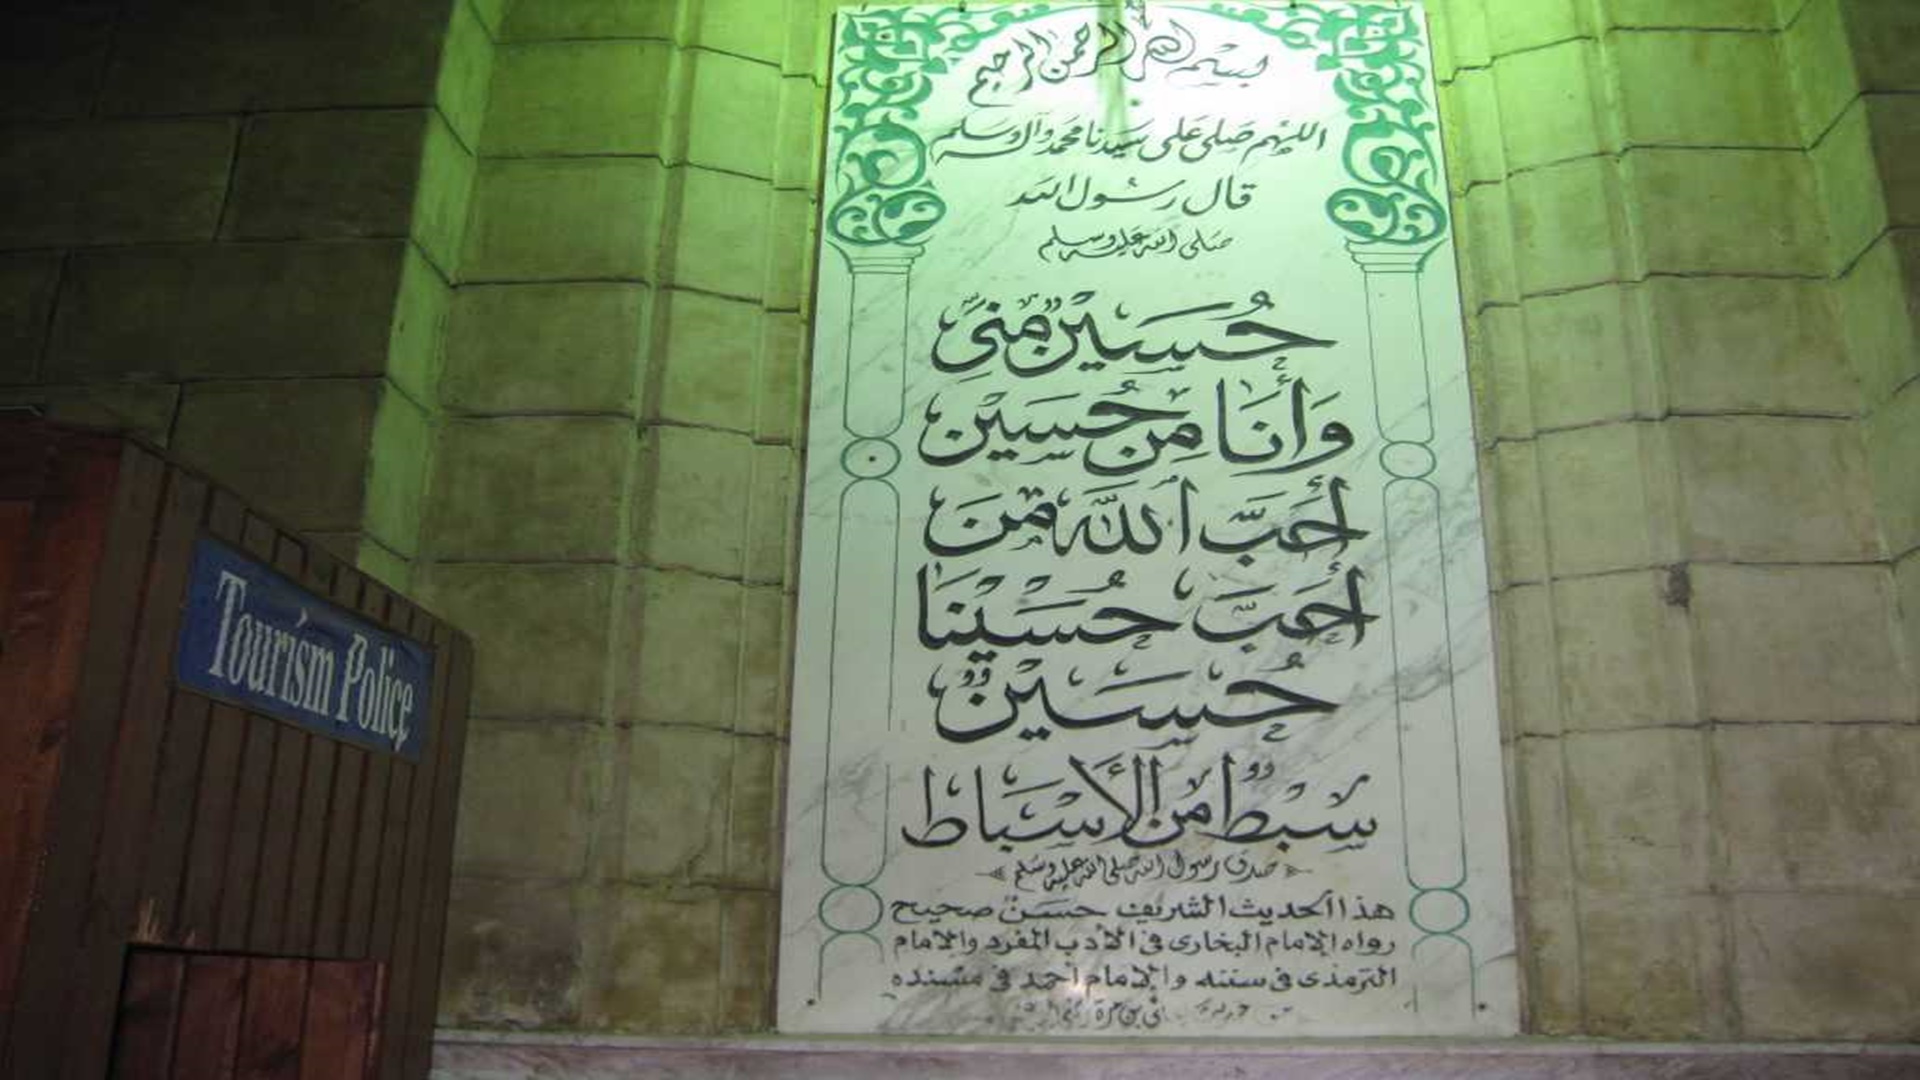 بسم الله الرحمن الرحيم
اللهم صلى على سيدنا محمد وآله وسلم
قال رسول الله
صلى الله عليه وسلم
حُسَيْنٌ مِنِّي
وَأَنَا مِنْ حُسَيْن
أَحَبَّ اللَّهُ مَنْ
أَحَبَّ حُسَيْنَا
حُسَيْنٌ
سِبْطٌ مِنَ الأَسْبَاط
صدق رسول الله صلى الله عليه وسلم
هذا الحديث الشريف حسن صحيح
رواه الإمام البخارى فى الأدب المفرد والإمام
الترمذى فى سننه والإمام أحمد فى مسنده
بن مرة
Tourism Police